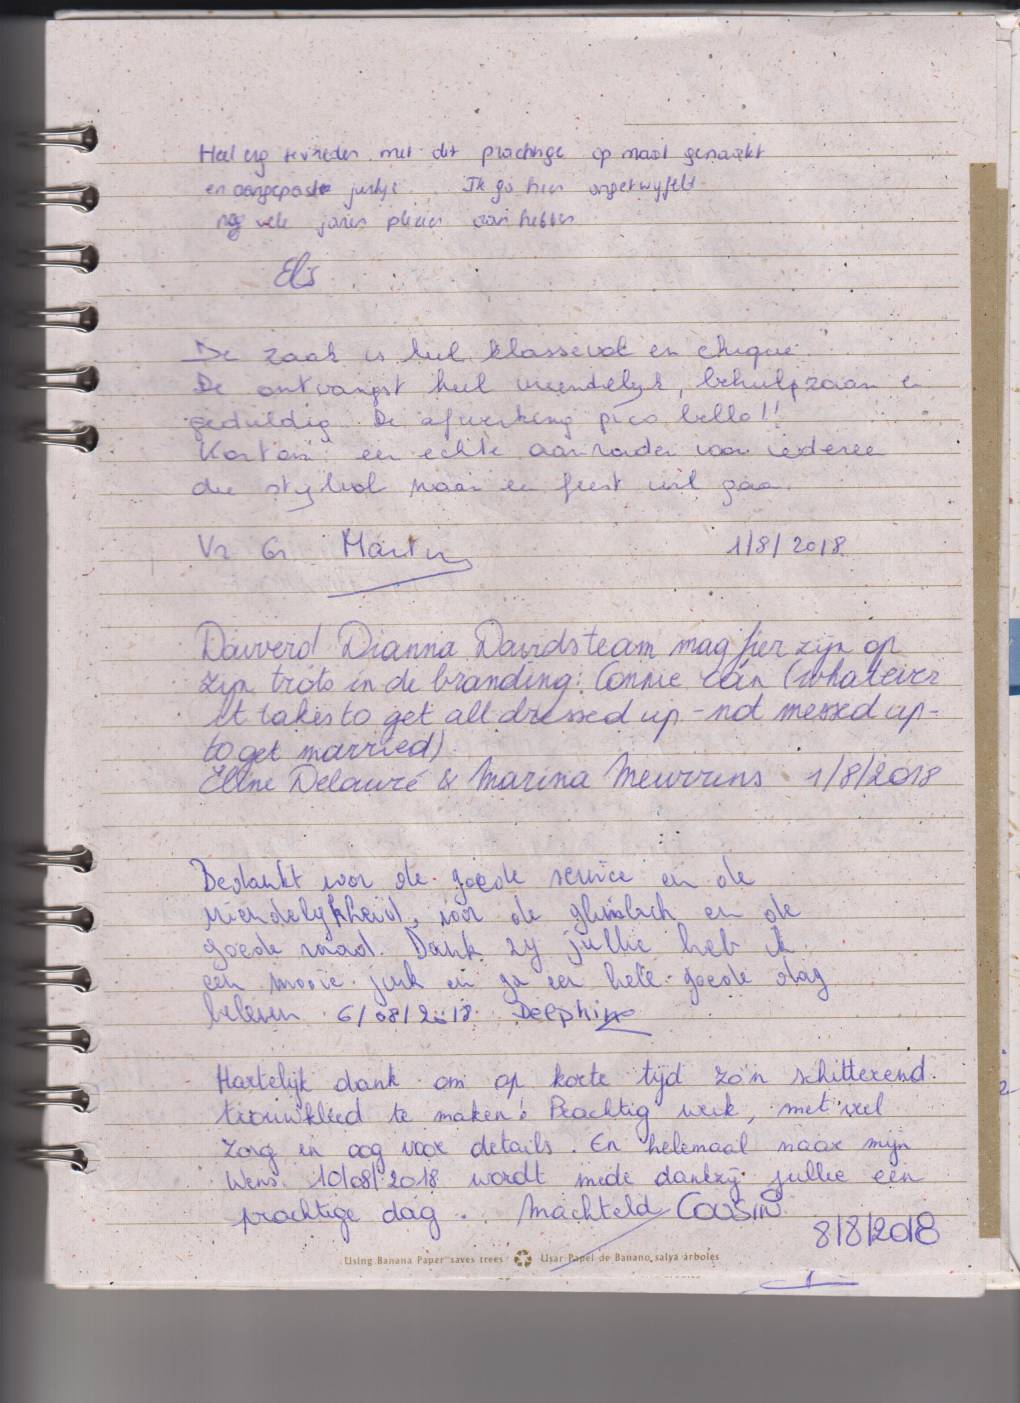 Heel erg tevreden met dit prachtige op maat gemaakt
en aangepaste jurkje. Ik ga hier ongetwijfeld
nog vele jaren plezier aan hebben
Els
De zaak is heel klassevol en chique.
De ontvangst heel vriendelijk, behulpzaam en
geduldig. De afwerking pico bello!!
Kortom: een echte aanrader voor iedereen
die stijlvol naar een feest wil gaan.
Vr Gr 1/8/2018
Dianna Davidsteam mag fier zijn op
zijn trots in de branding: Connie van (whatever
it takes to get all dressed up - not messed up -
to get married)
Eline Delauré & Marina Meurrens 1/8/2018
Bedankt voor de goede service en de
vriendelijkheid, voor de glimlach en de
goede raad. Dank zij jullie heb ik
een mooie jurk en ga een hele goede dag
beleven 6/08/2018 Delphine
Hartelijk dank om op korte tijd zo'n schitterend
trouwkleed te maken! Prachtig werk, met veel
zorg en oog voor details. En helemaal naar mijn
wens. 10/08/2018 wordt mede dankzij jullie een
prachtige dag. Machteld COUSIN
8/8/2018
Using Banana Paper saves trees Usar Papel de Banano salva árboles